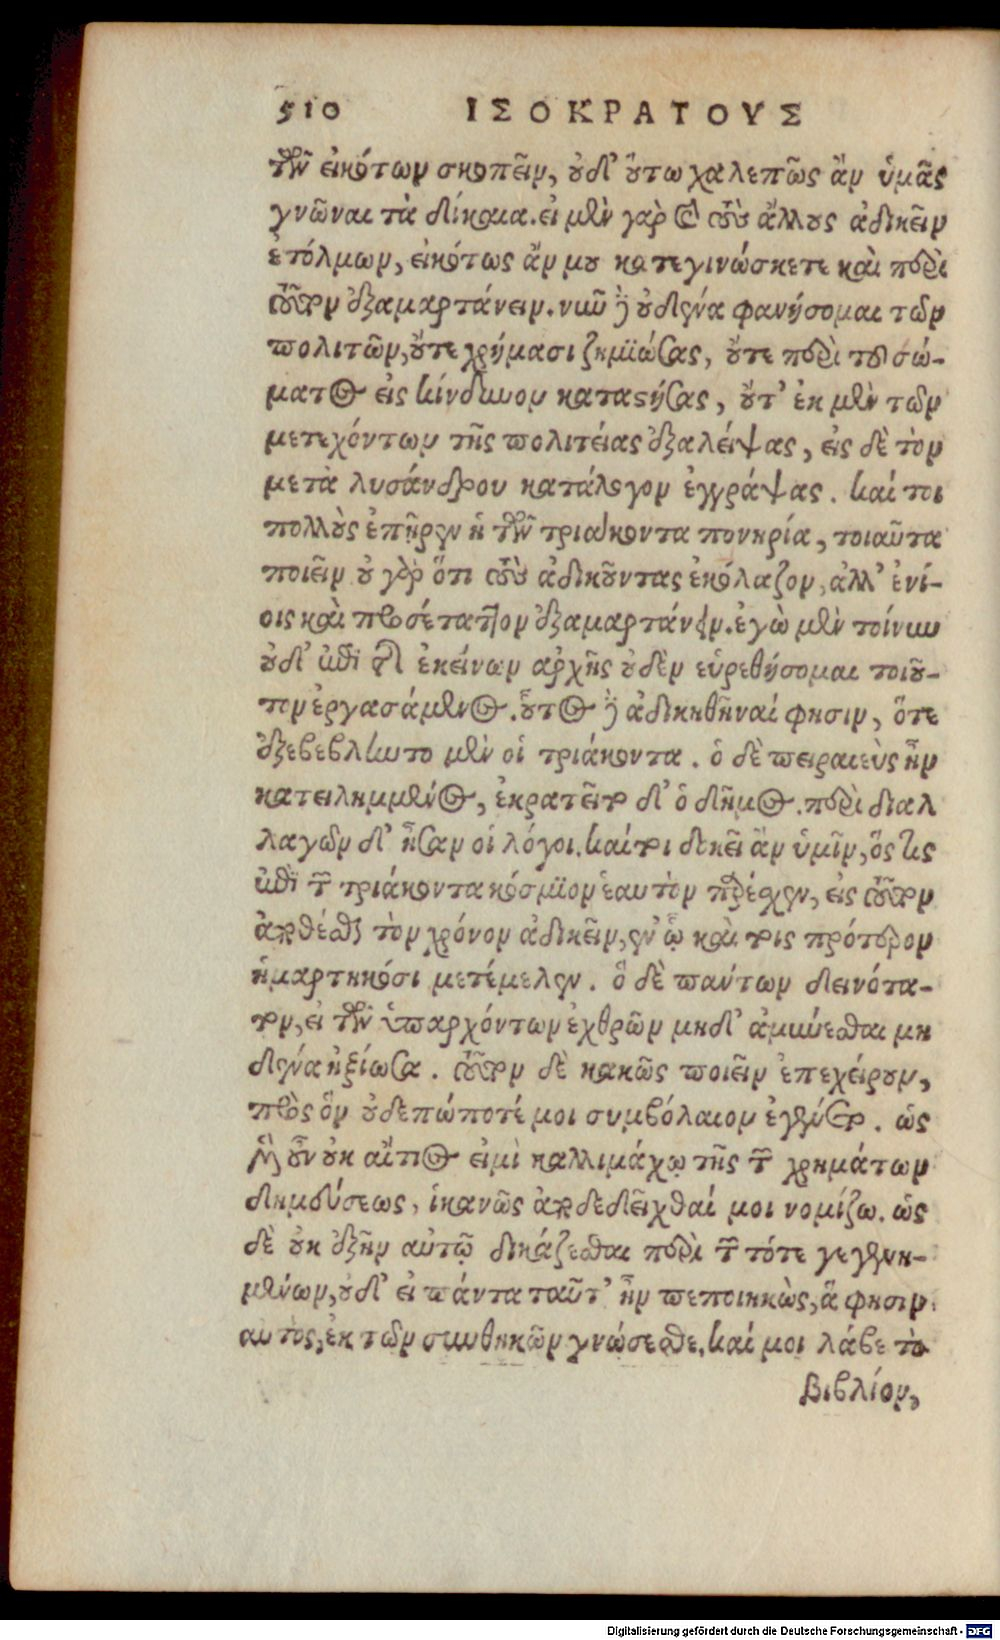 510 ΙΣΟΚΡΑΤΟΥΣ
τῶν εἰκότων σκοπεῖν, οὐδ' οὕτω χαλεπῶς ἂν ὑμᾶς
γνῶναι τὰ δίκαια. εἰ μὲν γὰρ καὶ τοὺς ἄλλους ἀδικεῖν
ἐτόλμων, εἰκότως ἄν μου κατεγινώσκετε καὶ περὶ
τοῦτον ἐξαμαρτάνειν. νῦν δὲ οὐδένα φανήσομαι τῶν
πολιτῶν, οὔτε χρήμασι ζημϊώσας, οὔτε περὶ τοῦ σώ-
ματος εἰς κίνδυνον καταστήσας, οὔτ' ἐκ μὲν τῶν
μετεχόντων τῆς πολιτείας ἐξαλείψας, εἰς δὲ τὸν
μετὰ λυσάνδρου κατάλογον ἐγγράψας. καί τοι
πολλοὺς ἐπῇρεν ἡ τῶν τριάκοντα πονηρία, τοιαῦτα
ποιεῖν οὐ γὰρ ὅτι τοὺς ἀδικοῦντας ἐκόλαζον, ἀλλ' ἐνί-
οις καὶ προσέταττον ἐξαμαρτάνειν. ἐγὼ μὲν τοίνυν
οὐδ' ἐπὶ τῆς ἐκείνων ἀρχῆς οὐδὲν εὑρεθήσομαι τοιοῦ-
τον ἐργασάμενος. οὗτος δὲ ἀδικηθῆναί φησιν, ὅτε
ἐξεβεβλήυτο μὲν οἱ τριάκοντα. ὁ δὲ πειραιεὺς ἦν
κατειλημμένος, ἐκρατεῖτο δ' ὁ δῆμος. περὶ διαλ
λαγῶν δ' ἦσαν οἱ λόγοι. καίτοι δοκεῖ ἂν ὑμῖν, ὅς τις
ἐπὶ τῶν τριάκοντα κόσμϊον ἑαυτὸν παρέχεν, εἰς τοῦτον
ἀποθέσθαι τὸν χρόνον ἀδικεῖν, ἐν ᾧ καὶ τοῖς πρότερον
ἡμαρτηκόσι μετέμελεν. ὃ δὲ πάντων δεινότα-
τον, εἰ τῶν ὑπαρχόντων ἐχθρῶν μηδ' ἀμύνεσθαι μη
δένα ἠξίωσα. τοῦτον δὲ κακῶς ποιεῖν ἐπεχείρουν,
πρὸς ὃν οὐδεπώποτέ μοι συμβόλαιον ἐγένετο. ὡς
μὲν οὖν οὐκ αἴτιός εἰμὶ καλλιμάχῳ τῆς τῶν χρημάτων
δημεύσεως, ἱκανῶς ἀποδεδεῖχθαί μοι νομίζω. ὡς
δὲ οὐκ ἐξῆν αὐτῷ δικάζεσθαι περὶ τῶν τότε γεγενη-
μένων, οὐδ' εἰ πάντα ταῦτ' ἦν πεποιηκὼς, ἅ φησιν
αυτὸς, ἐκ τῶν συνθηκῶν γνώσεσθε. καί μοι λάβε τὸ
βιβλίον,
Digitalisierung gefördert durch die Deutsche Forschungsgemeinschaft - DFG